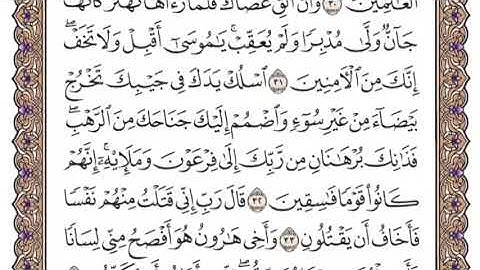 ٱلْعَٰلَمِينَ ٣٠ وَأَنْ أَلْقِ عَصَاكَ فَلَمَّا رَءَاهَا تَهْتَزُّ كَأَنَّهَا
جَآنٌّ وَلَّىٰ مُدْبِرًا وَلَمْ يُعَقِّبْ يَٰمُوسَىٰٓ أَقْبِلْ وَلَا تَخَفْ
إِنَّكَ مِنَ ٱلْأٓمِنِينَ ٣١ ٱسْلُكْ يَدَكَ فِى جَيْبِكَ تَخْرُجْ
بَيْضَآءَ مِنْ غَيْرِ سُوٓءٍ وَٱضْمُمْ إِلَيْكَ جَنَاحَكَ مِنَ ٱلرَّهْبِ
فَذَٰنِكَ بُرْهَٰنَانِ مِن رَّبِّكَ إِلَىٰ فِرْعَوْنَ وَمَلَإِيْهِۦٓ إِنَّهُمْ
كَانُوا۟ قَوْمًا فَٰسِقِينَ ٣٢ قَالَ رَبِّ إِنِّى قَتَلْتُ مِنْهُمْ نَفْسًا
فَأَخَافُ أَن يَقْتُلُونِ ٣٣ وَأَخِى هَٰرُونُ هُوَ أَفْصَحُ مِنِّى لِسَانًا